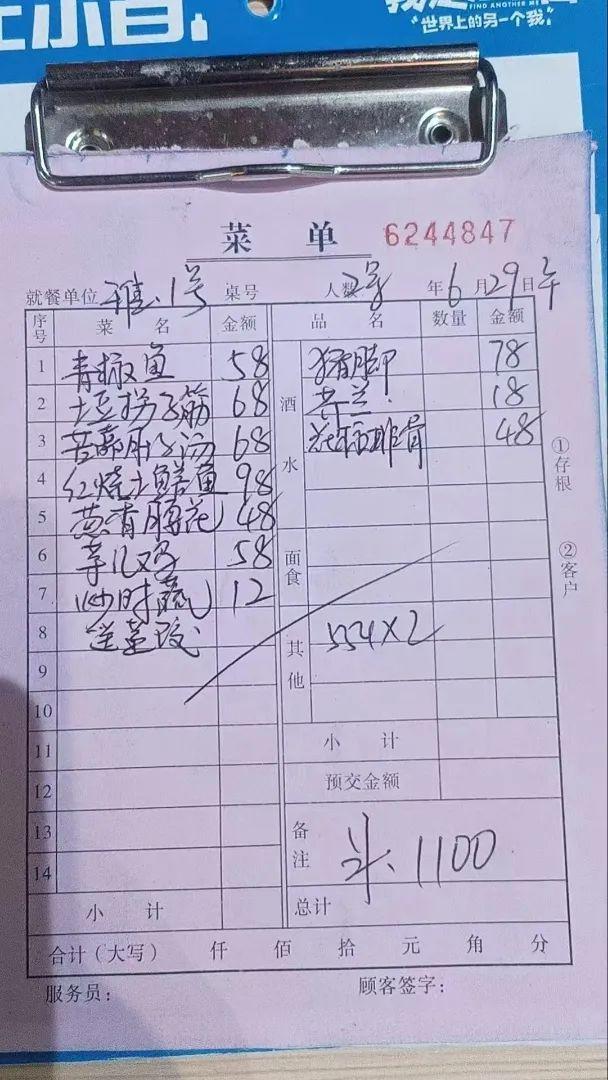 FIND ANOTHER ME
世界上的另一个我
菜 单 6244847
就餐单位 雅.1号 桌号 人数 2号 年 6 月 29 日 午
序号 菜 名 金额 品 名 数量 金额
1 青椒鱼 58 猪脚 78
2 土豆拐子筋 68 酒水 芥兰 18
3 68 排骨 48
4 红烧土鳝鱼 98
5 葱青腰花 48
6 58 面食
7 炒时蔬 12
8 送 其他 554×2
9
10
11 小 计
12 预交金额
13 备注 1100
14
小 计 总计
合计(大写) 仟 佰 拾 元 角 分
服务员: 顾客签字:
①存根
②客户